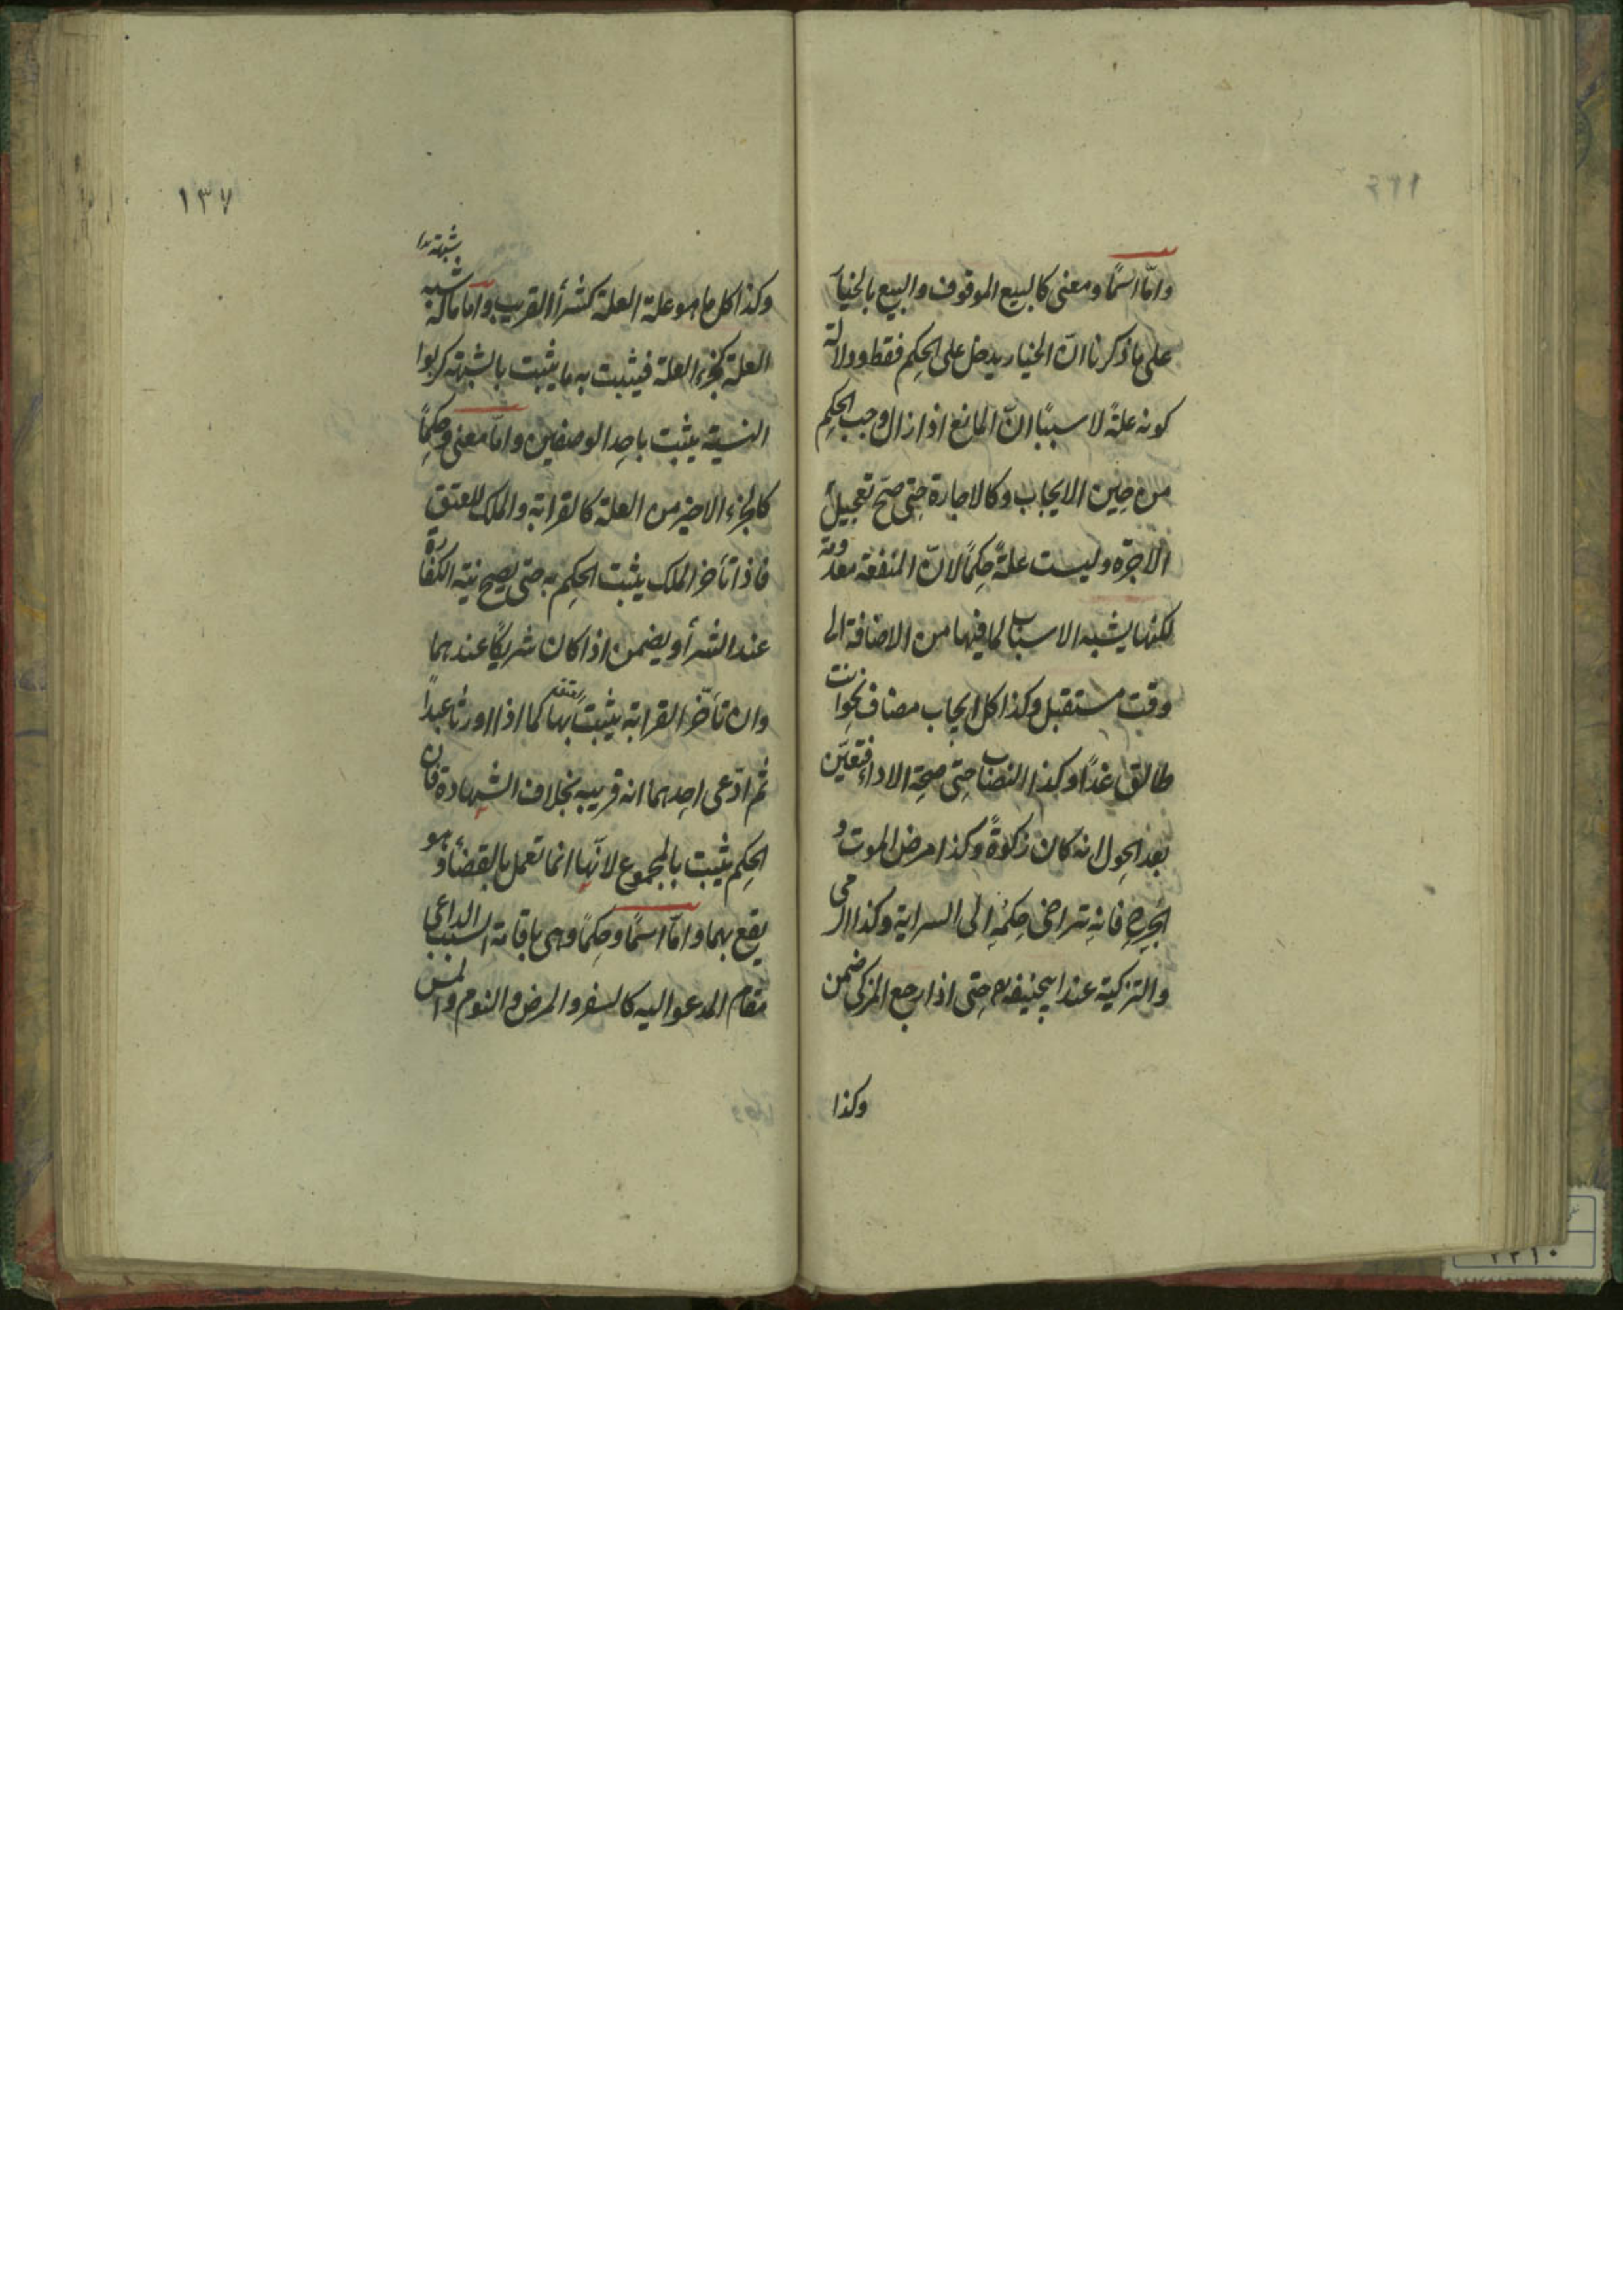 وامّا اسمًا ومعنى كالبيع الموقوف والبيع بالخيار
على ما ذكرنا انّ الخيار يدخل على الحكم فقط ودلالة
كونه علةً لا سببًا انّ المانع اذا زال وجب الحكم
من حين الايجاب وكالاجارة حتى صحّ تعجيل
الاجرة وليست علةً حكمًا لانّ المنفعة معدومة
لكنها يشبه الاسباب لما فيها من الاضافة الى
وقت مستقبل وكذا كل ايجاب مضاف نحو انت
طالق غدًا وكذا النصاب حتى صحة الاداء فتعيّن
بعد الحول انه كان زكوةً وكذا مرض الموت و
الجرح فانه تتراخى حكمه الى السراية وكذا الرمى
والتزكية عند ابيحنيفة رم حتى اذا رجع المزكى ضمن
وكذا
١٣٧
وكذا كل ما هو علة العلة كشرأ القريب واما ماله شبه
العلة كجزء العلة فيثبت به ما يثبت بالشبهة كربوا
النسية يثبت باحد الوصفين وامّا معنى وحكمًا
كالجزء الاخير من العلة كالقرابة والملك للعتق
فاذا تأخر الملك يثبت الحكم به حتى يصح نية الكفارة
عند الشرأ ويضمن اذا كان شريكًا عندهما
وان تأخّر القرابة يثبت بها كما اذا اورثا عبدًا
ثم ادّعى احدهما انه قريبه بخلاف الشهادة فان
الحكم يثبت بالمجموع لانّها انما تعمل بالقضأ وهو
يقع بهما وامّا اسمًا وحكمًا وهى باقامة السبب الداعى
مقام المدعو اليه كالسفر والمرض والنوم والمس